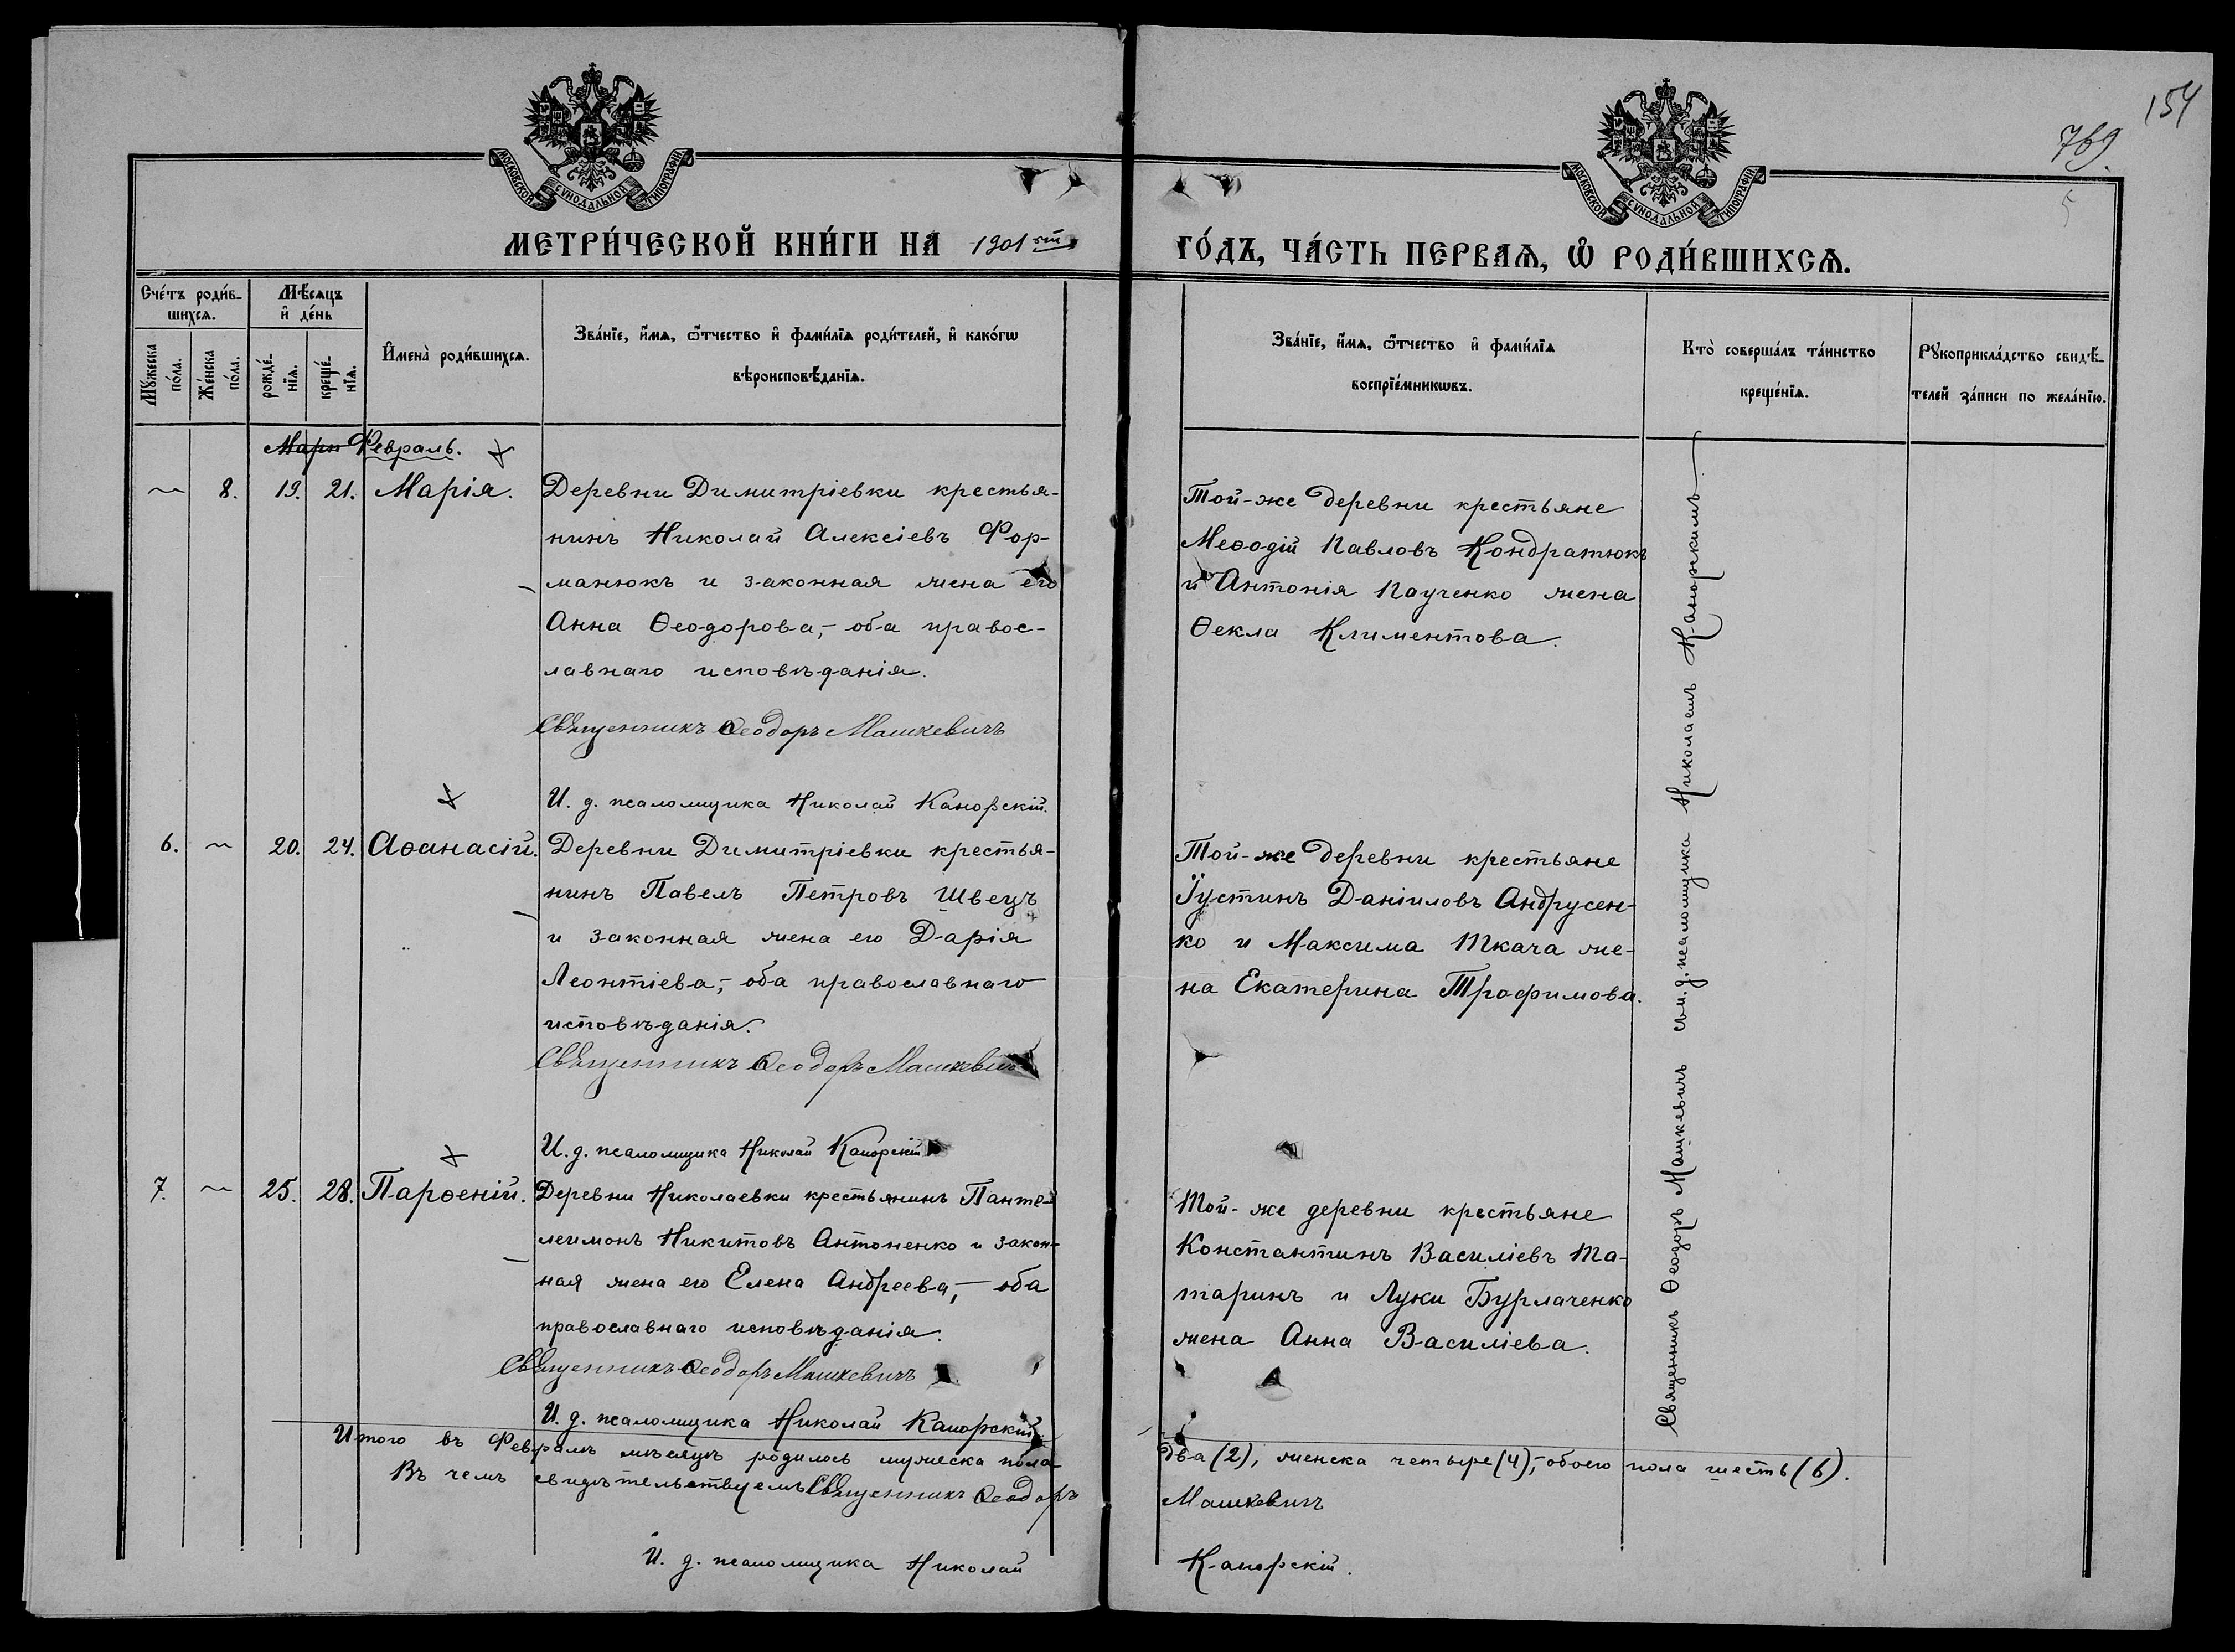 154
769.
МОСКОВСКОЙ СѴНОДАЛЬНОЙ ТИПОГРАФІИ
МОСКОВСКОЙ СѴНОДАЛЬНОЙ ТИПОГРАФІИ
МЕТРИ́ЧЕСКОЙ КНИ́ГИ НА 1901 ый
ГО́ДЪ, ЧА́СТЬ ПЕРВАѦ, Ѡ҆ РОДИ́ВШИХСѦ.
Сче́тъ роди́в-
шихсѧ.
Мѣ́сѧцъ
и҆ де́нь
Мꙋ́жеска по́ла.
Же́нска по́ла.
рожде́-нїѧ.
креще́-нїѧ.
И҆мена̀ роди́вшихсѧ.
Зва́нїе, и҆́мѧ, ѻ҆́тчество и҆ фами́лїѧ роди́телей, и҆ како́гѡ
вѣроисповѣ́данїѧ.
Зва́нїе, и҆́мѧ, ѻ҆́тчество и҆ фами́лїѧ
воспрїе́мникѡвъ.
Кто̀ соверша́лъ та́инство
креще́нїѧ.
Рꙋкоприкла́дство свидѣ́-
телей за́писи по жела́нїю.
Март Февраль.
8. 19. 21. Марія. Деревни Димитріевки крестья-
нинъ Николай Алексіевъ Фор-
манюкъ и законная жена его
Анна Ѳеодорова,- оба правос-
лавнаго исповѣданія.
Священникъ Ѳеодоръ Машкевичъ
И. д. псаломщика Николай Канорскій.
Той-же деревни крестьяне
Меѳодій Павловъ Кондратюкъ
и Антонія Паученко жена
Ѳекла Климентова.
6. 20. 24. Аѳанасій. Деревни Димитріевки крестья-
нинъ Павелъ Петровъ Швецъ
и законная жена его Дарія
Леонтіева,- оба православнаго
исповѣданія.
Священникъ Ѳеодоръ Машкевичъ
И. д. псаломщика Николай Канорскій
Той-же деревни крестьяне
Іустинъ Даніиловъ Андрусен-
ко и Максима Ткача же-
на Екатерина Трофимова.
7. 25. 28. Парѳеній. Деревни Николаевки крестьянинъ Панте-
леимонъ Никитовъ Антоненко и закон-
ная жена его Елена Андреева,- оба
православнаго исповѣданія.
Священникъ Ѳеодоръ Машкевичъ
И. д. псаломщика Николай Канорскій
Той-же деревни крестьяне
Константинъ Василіевъ Та-
таринъ и Луки Бурлаченко
жена Анна Василіева.
Священникъ Ѳеодоръ Машкевичъ съ и. д. псаломщика Николаемъ Канорскимъ
Итого въ Февралѣ мѣсяцѣ родилось мужеска пола
два (2), женска четыре (4),- обоего пола шесть (6).
Въ чемъ свидѣтельствуемъ Священникъ Ѳеодоръ
Машкевичъ
И. д. псаломщика Николай
Канорскій.